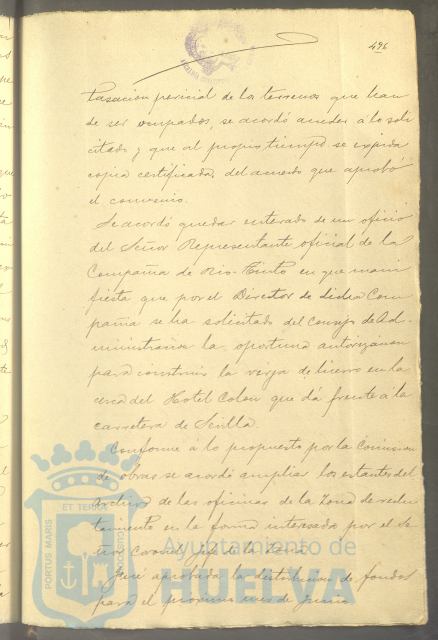 496
tasacion pericial de los terrenos que han
de ser ocupados, se acordó acceder á lo soli
citado y que al propio tiempo se expida
copia certificada, del acuerdo que aprobó
el convenio.
Se acordó quedar enterado de un oficio
del Señor Representante oficial de la
Compañia de Rio-Tinto en que mani
fiesta que por el Director de dicha Com
pañia se ha solicitado del Consejo de Ad-
ministracion la oportuna autorizacion
para construir la verja de hierro en la
cerca del Hotel Colon que dá frente á la
carretera de Sevilla.
Conforme á lo propuesto por la Comision
de obras se acordó ampliar los estantes del
archivo de las oficinas de la Zona de reclu
tamiento en la forma interesada por el Se
ñor Coronel Jefe de la Zona
Fué aprobada la distribucion de fondos
para el próximo mes de Junio
ET TERRÆ
PORTUS MARIS
CUSTODIA
Ayuntamiento de
HUELVA